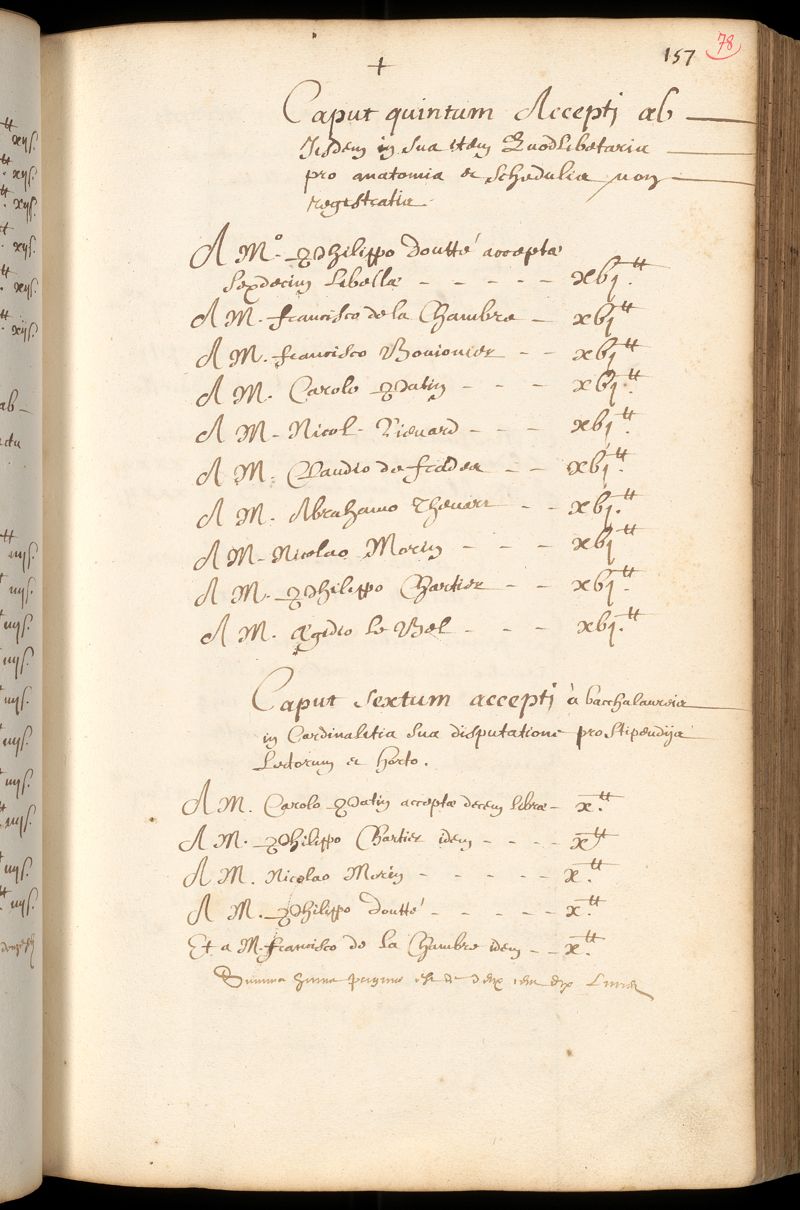 157 78
+
Caput quintum Accepti ab
Iisdem in sua item Quodlibetaria
pro anatomia et schedulis non
registratis.
A M.o Philippo Doutté acceptæ
sexdecim libellæ - - - - - xvj.tt
A M. Francisco de la Chambre - xvj.tt
A M. Francisco Bouionier - - xvj.tt
A M. Carolo Patin - - - xvj.tt
A M. Nicol. Lienard - - - xvj.tt
A M. Claudio de Frades - - xvj.tt
A M. Abrahamo Thevart - - xvj.tt
A M. Nicolao Morin - - - xvj.tt
A M. Philippo Chartier - - xvj.tt
A M. Ægidio le Bel - - - xvj.tt
Caput sextum accepti à bacchalaureis
in Cardinalitia sua disputatione pro stipendijs
Lectorum et horto.
A M. Carolo Patin acceptæ decem libræ - x.tt
A M. Philippo Chartier idem - - - - x.tt
A M. Nicolao Morin - - - - - x.tt
A M. Philippo Doutté - - - - - x.tt
Et a M. Francisco de la Chambre idem - - x.tt
Summa est de dix
xijs.
xijs.
xijs.
xijs.
xijs.
xijs.
ab